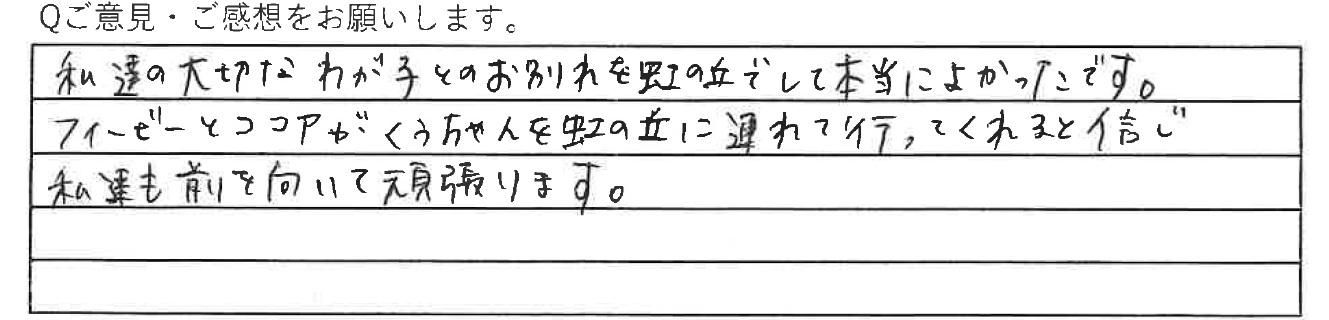 Qご意見・ご感想をお願いします。
私達の大切なわが子とのお別れを虹の丘でして本当によかったです。
フィーゼーとココアがくうちゃんを虹の丘に連れて行ってくれると信じ
私達も前を向いて頑張ります。